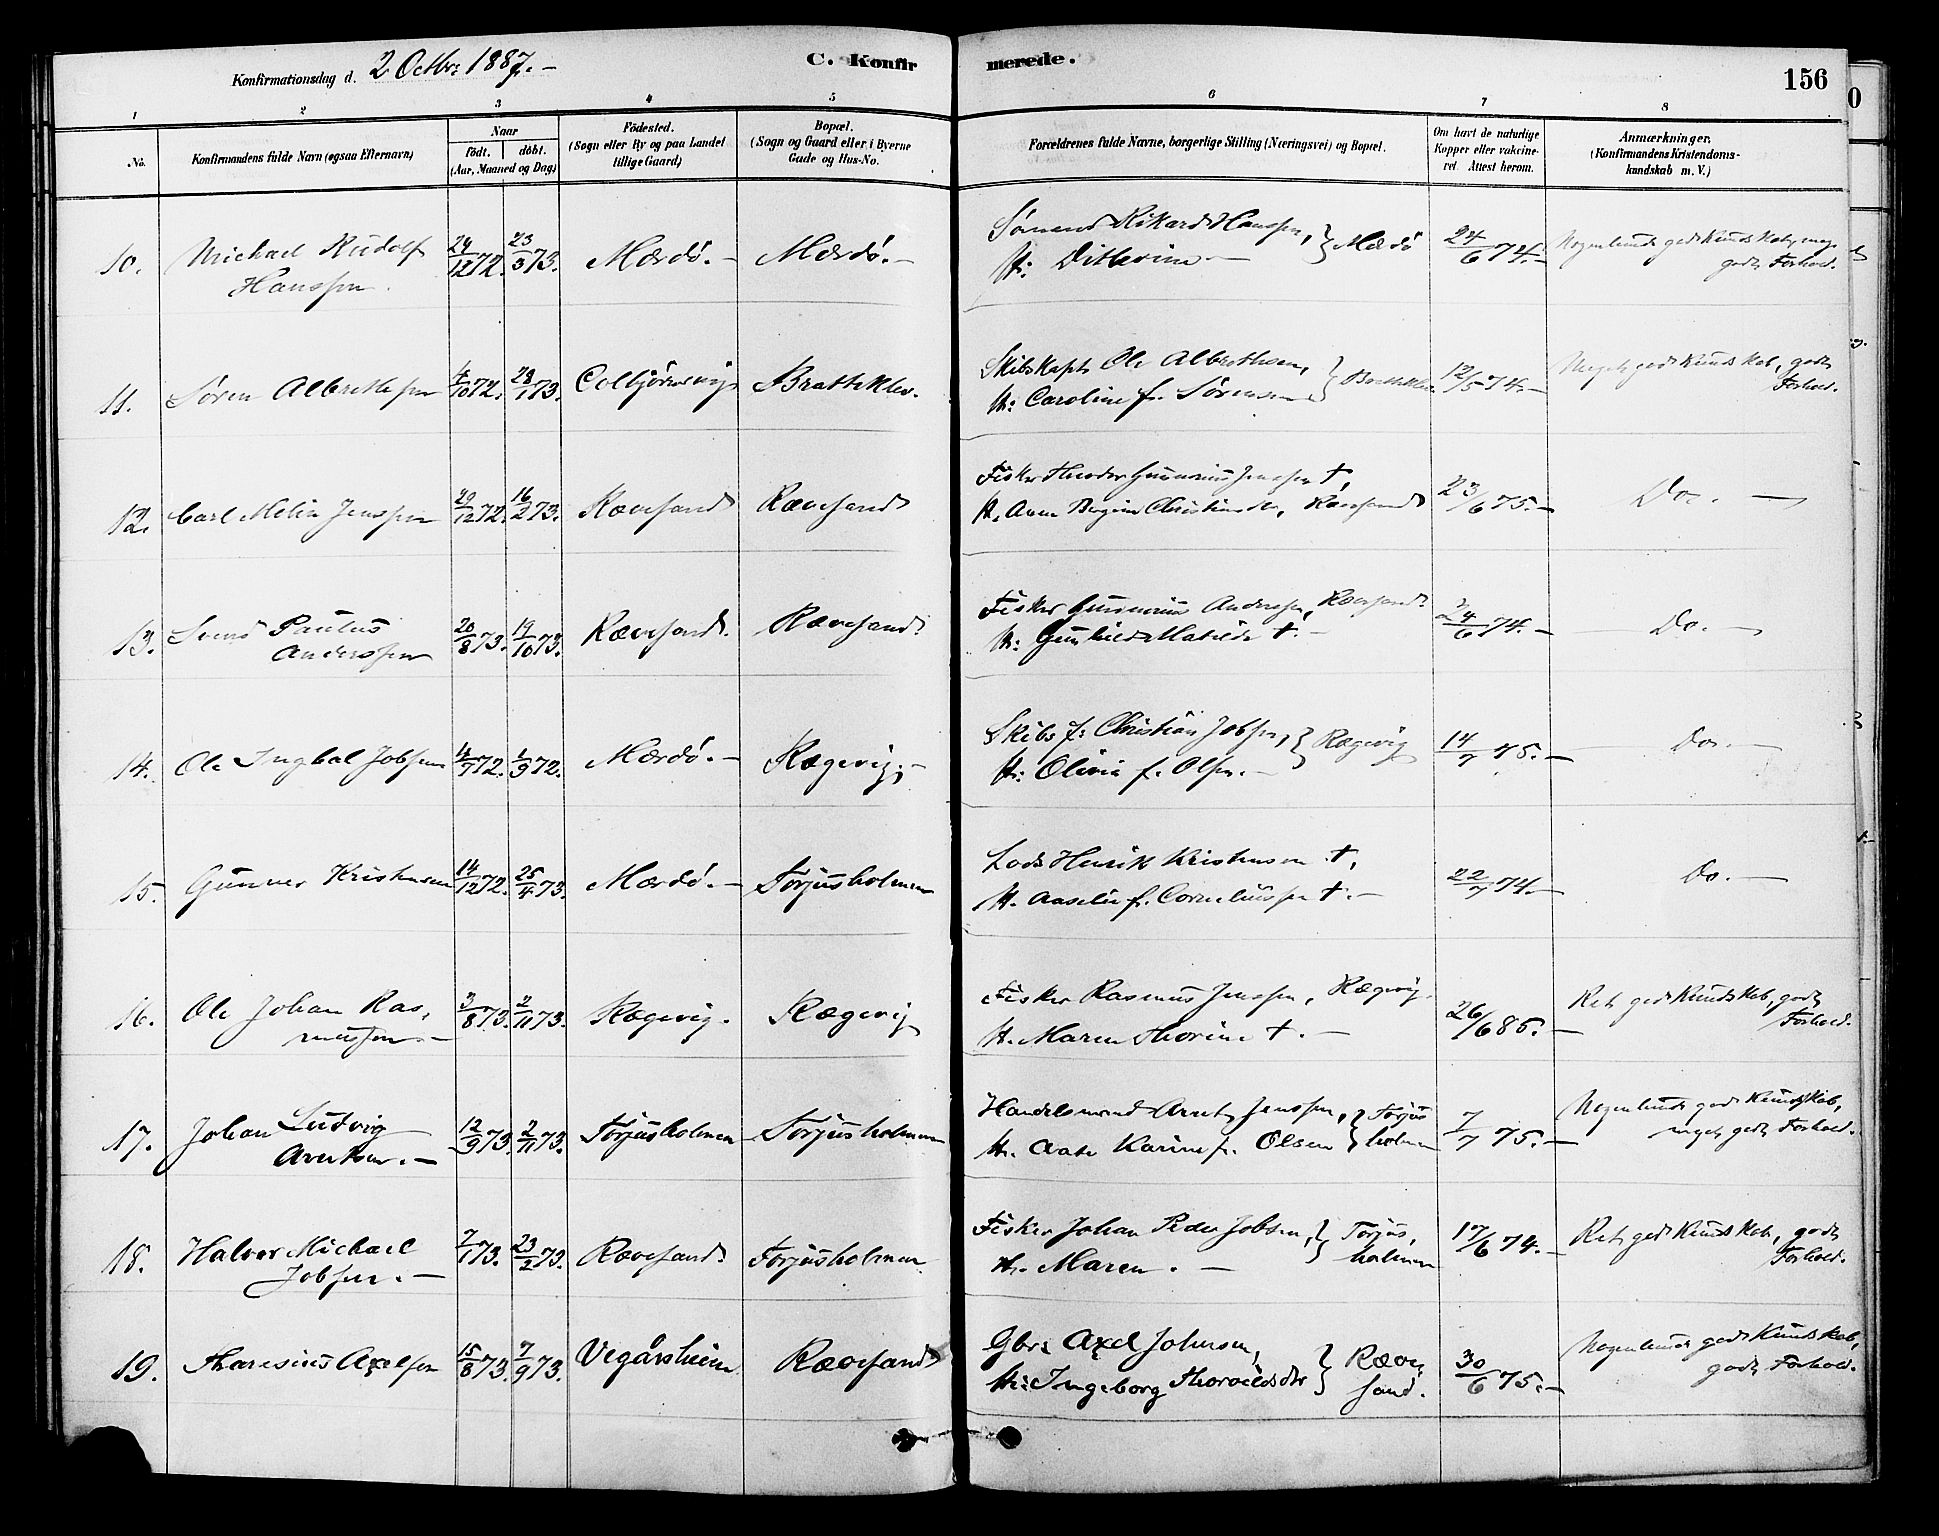 Konfirmationsdag d. 2 Octbr. 1887.-
C. Konfirmerede.
156
1 2 3 4 5 6 7 8
No.
Konfirmandens fulde Navn (ogsaa Efternavn)
Naar
Födt. döbt.
(Aar, Maaned og Dag)
Födested.
(Sogn eller By og paa Landet
tillige Gaard)
Bopæl.
(Sogn og Gaard eller i Byerne
Gade og Hus-No.
Forældrenes fulde Navne, borgerlige Stilling (Næringsvei) og Bopæl.
Om havt de naturlige
Kopper eller vakcine-
ret. Attest herom.
Anmærkninger.
(Konfirmandens Kristendoms-
kundskab m. V.)
10. Michael Rudolf
Hanssen.
24/12 72. 23/3 73. Mærdö.- Mærdö.-
Sömand Rikard Hanssen,
H: Ditlevine - } Mærdö
24/6 74.-
Nogenlunde god Kundskab, meg.
godt Forhold.
11. Sören Albrethsen 4/10 72. 28/1 73. Colbjörnsvig Bratteklev.
Skibskapt. Ole Albrethsen,
H: Caroline f. Sörensen } Bratteklev
12/5 74.-
Meget god Kundskab, godt
Forhold.
12. Carl Melin Jenssen 20/12 72. 16/2 73. Rævesand Rævesand
Fisker Theodor Gunerius Jenssen †,
H. Anne Birgine Christiansdtr, Rævesand
23/6 75.- Do. -
13. Svend Paulus
Anderssen
20/8 73. 19/10 73. Rævesand. Rævesand.
Fisker Gunerius Anderssen, Rævesand.
H: Gunhild Matilde †.-
24/6 74.- Do. -
14. Ole Ingbal Jobsen 4/7 72. 1/9 72. Mærdö.- Rægevig.-
Skibsf: Christian Jobsen,
H: Olivia f. Olsen.- } Rægevig
14/7 75.- Do. -
15. Gunner Kristensen 14/12 72. 25/4 73. Mærdö.- Torjusholmen
Lods Henrik Kristensen †,
H. Aaselie f. Corneliussen †.-
22/7 74.- Do. -
16. Ole Johan Ras-
mussen.-
3/8 73. 2/11 73. Rægevig. Rægevig
Fisker Rasmus Jenssen, Rægevig.
H. Maren Thorine †.-
26/6 85.-
Ret god Kundskab, godt
Forhold.
17. Johan Ludvig
Arntsen.-
12/9 73. 2/11 73. Torjusholmen Torjusholmen
Handelsmand Arnt Jenssen,
H. Aase Karine f. Olsen } Torjus
holmen
7/7 75.-
Nogenlunde god Kundskab,
meget godt Forhold.
18. Halvor Michael
Jobsen.-
7/1 73. 23/2 73. Rævesand. Torjusholmen
Fisker Johan Peder Jobsen,
H. Maren.- } Torjus,
holmen
17/6 74.-
Ret god Kundskab, godt
Forhold.
19. Tharesius Axelsen 15/8 73. 7/9 73. Vegårsheien Rævesand
Gbr. Axel Johnsen,
H: Ingeborg Thorvildsdtr } Ræve,
sand.
30/6 75.-
Nogenlunde god Kundskab,
godt Forhold.